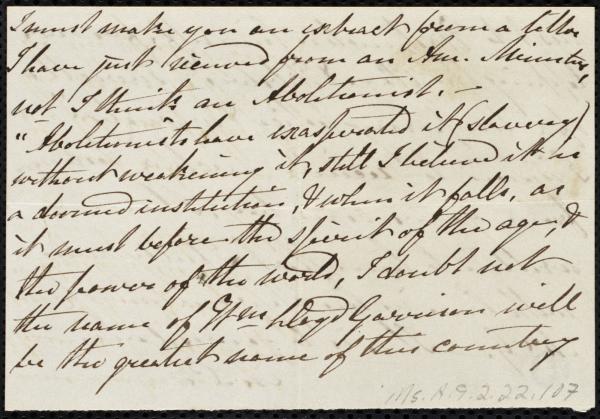 I must make you an extract from a letter
I have just received from an Am. Minister,
not I think an Abolitionist. –
"Abolitionists have exasperated it (slavery)
without weakening it, still I believe it is
a doomed institution, & when it falls, as
it must before the spirit of the age, &
the power of the world, I doubt not
the name of Wm Lloyd Garrison will
be the greatest name of this country
Ms. A. 9. 2. 22, 107